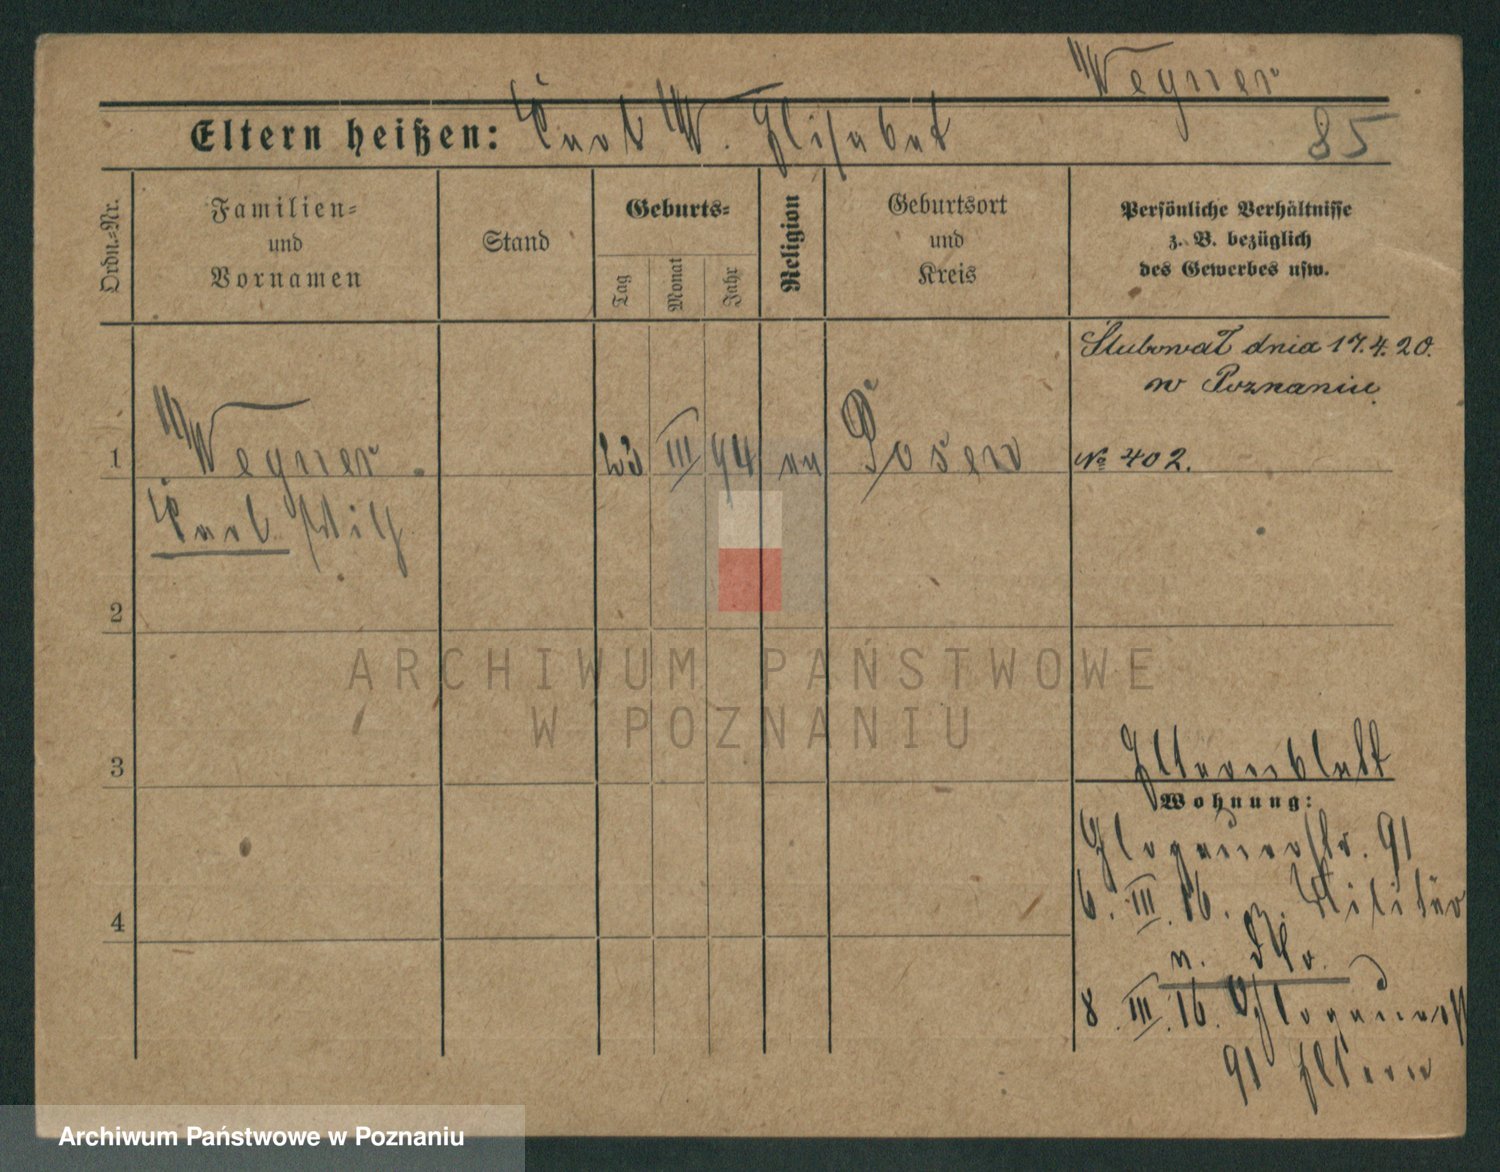 Wegner
85
Eltern heißen: Karl W. Elisabet
Ordn.=Nr.
Familien=
und
Vornamen
Stand
Geburts=
Tag
Monat
Jahr
Religion
Geburtsort
und
Kreis
Persönliche Verhältnisse
z. B. bezüglich
des Gewerbes usw.
Ślubował dnia 17.4.20.
w Poznaniu.
1
Wegner
23
III
94
Posen
№ 402.
Karl Wilh
2
3
Elternblatt
Wohnung:
Glogauerstr. 91
6. III. 16. z. Militär
8. III. 16. Glogauerst
91 Eltern
4
ARCHIWUM PAŃSTWOWE
W POZNANIU
Archiwum Państwowe w Poznaniu